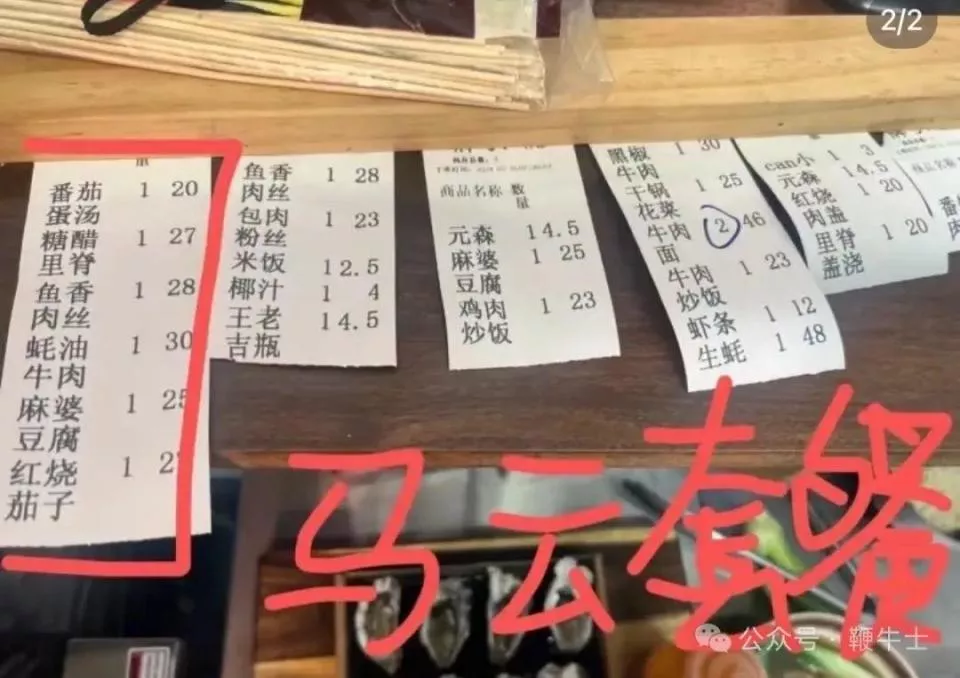 2/2
番茄 1 20
蛋汤
糖醋 1 27
里脊
鱼香 1 28
肉丝
蚝油 1 30
牛肉
麻婆 1 25
豆腐
红烧 1
茄子
鱼香 1 28
肉丝
包肉 1 23
粉丝
米饭 1 2.5
椰汁 1 4
王老 1 4.5
吉瓶
商品名称 数
量
元森 1 4.5
麻婆 1 25
豆腐
鸡肉 1 23
炒饭
黑椒 1 30
牛肉
干锅 1 25
花菜
牛肉 2 46
面
牛肉 1 23
炒饭
虾条 1 12
生蚝 1 48
can小 1 3
元森 1 4.5
红烧 1 20
肉盖
里脊 1 20
盖浇
马云套餐
公众号·鞭牛士